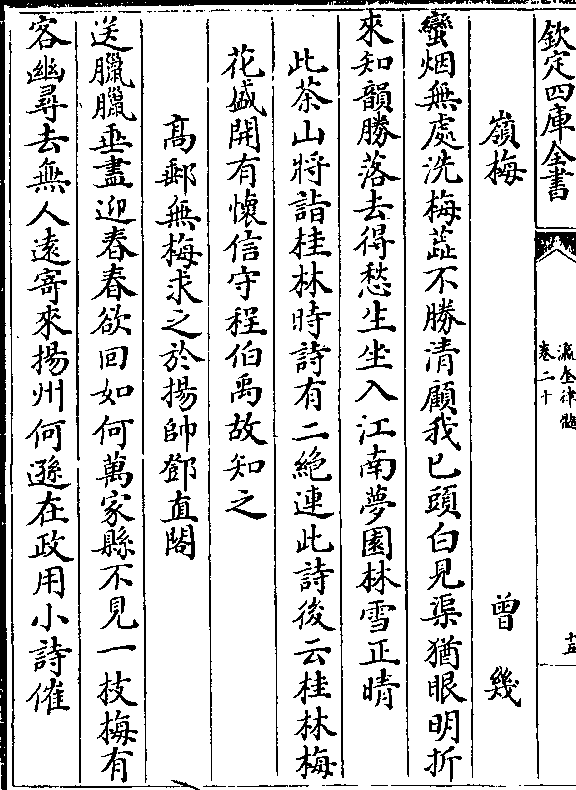 欽定四庫全書
瀛奎律髓
卷二十
嶺梅　曾幾
蠻烟無處洗梅蘂不勝清顧我已頭白見渠猶眼明折
來知韻勝落去得愁生坐入江南夢園林雪正晴
此茶山將詣桂林時詩有二絶連此詩後云桂林梅
花盛開有懷信守程伯禹故知之
髙郵無梅求之於揚帥鄧直閣
送臘臘垂盡迎春春欲回如何萬家縣不見一枝梅有
客幽尋去無人遠寄來揚州何遜在政用小詩催